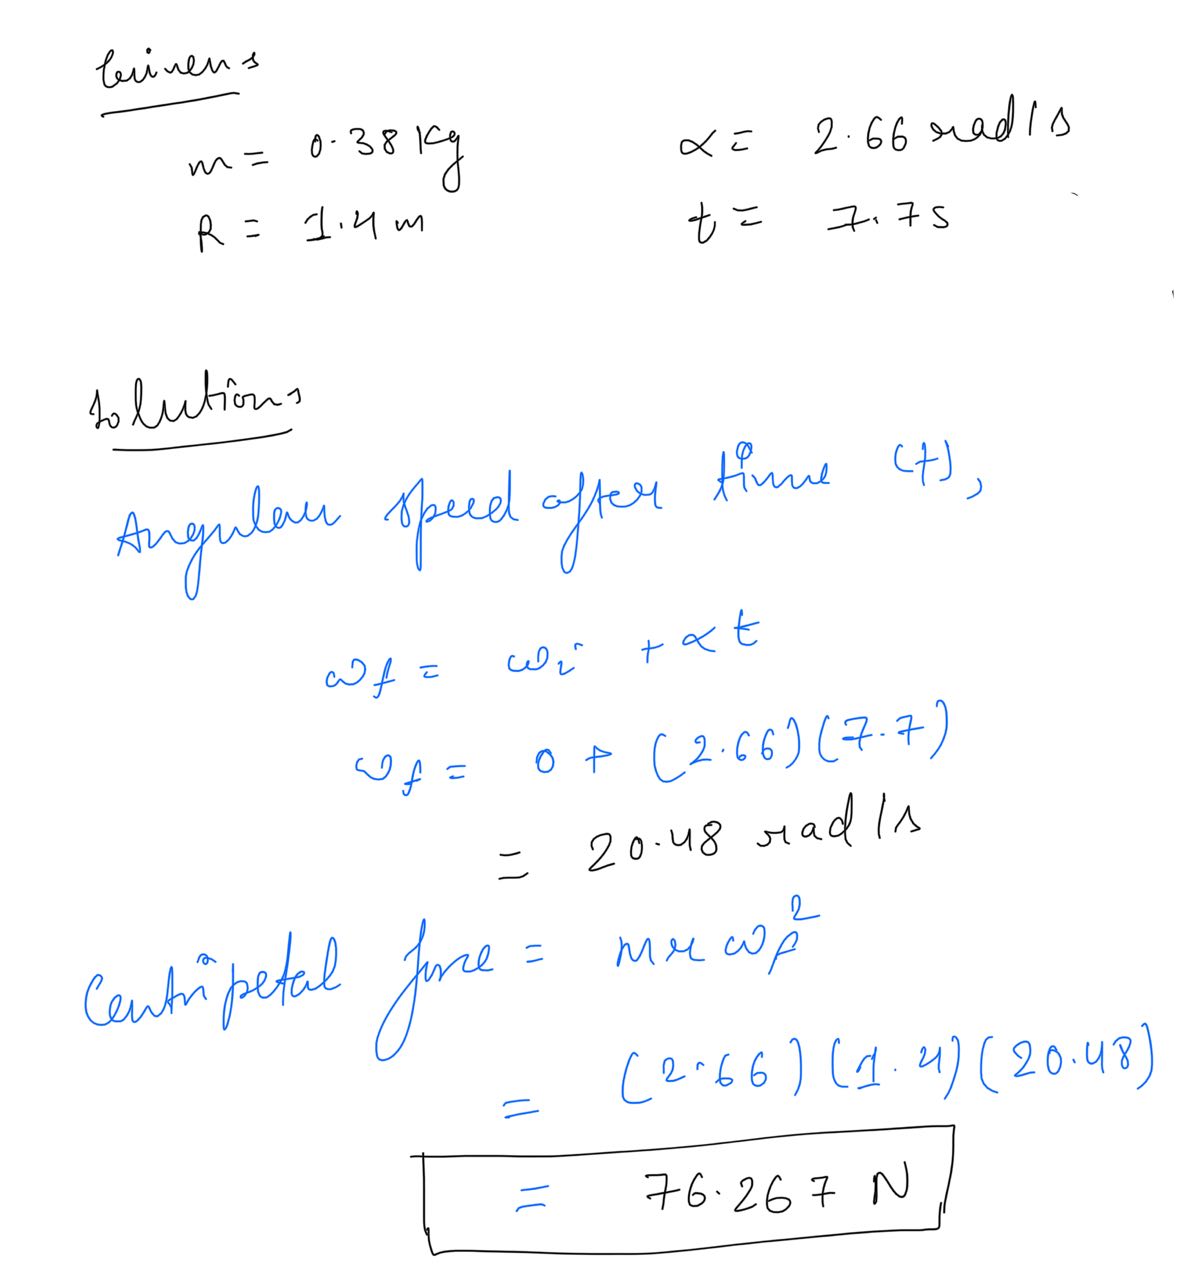 Givens
m = 0.38 Kg    α = 2.66 rad/s
R = 1.4 m    t = 7.7 s
Solutions
Angular speed after time (t),
ωf = ωi + αt
ωf = 0 + (2.66)(7.7)
= 20.48 rad/s
Centripetal force = mrωf²
= (2.66)(1.4)(20.48)
= 76.267 N